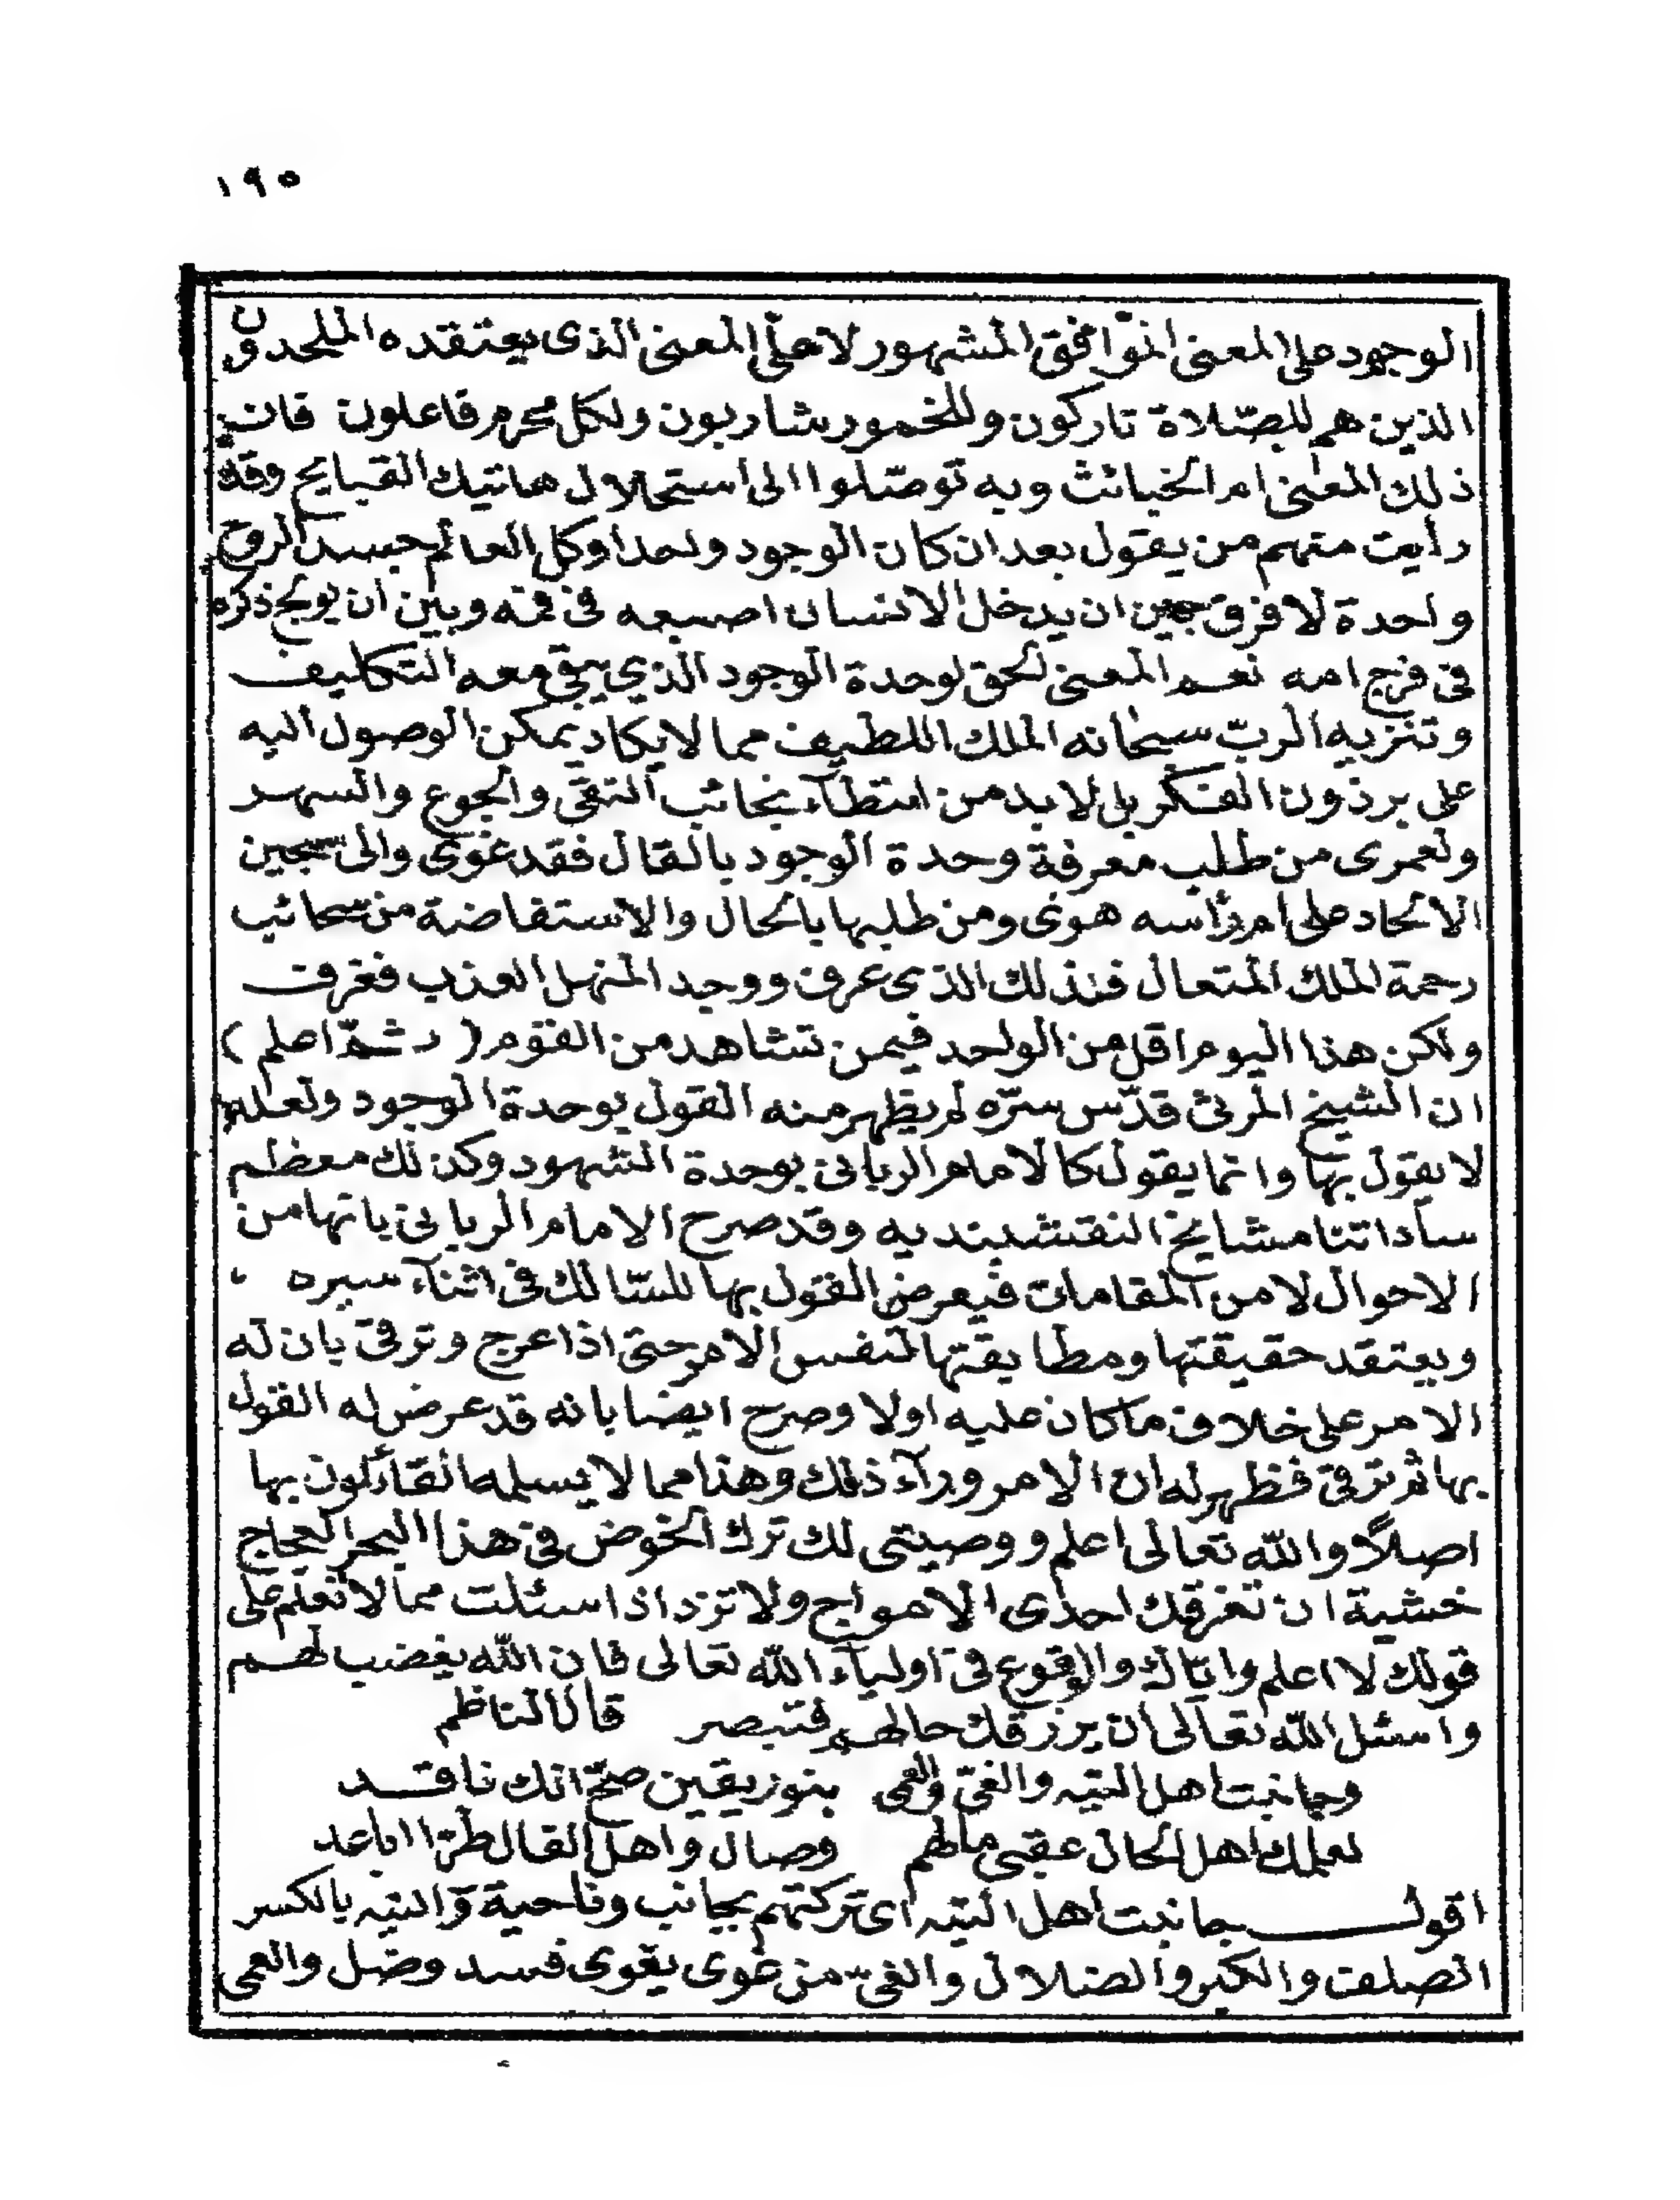 ١٩٥
الوجود على المعنى الموافق المشهور لا على المعنى الذى يعتقده الملحدون
الذين هم للصّلاة تاركون وللخمور شاربون ولكل محرم فاعلون فان
ذلك المعنى ام الخبائث وبه توصّلوا الى استحلال هاتيك القبايح وقد
رأيت منهم من يقول بعد ان كان الوجود واحدا وكل العالم جسد الروح
واحدة لا فرق بين ان يدخل الانسان اصبعه فى فمه وبين ان يولج ذكره
فى فرج امه نعم المعنى لحق لوحدة الوجود الذي يبقى معه التكليف
وتنزيه الربّ سبحانه الملك اللطيف مما لا يكاد يمكن الوصول اليه
على برذون الفكر بل لا بد من امتطآء نجائب التقى والجوع والسهر
ولعمرى من طلب معرفة وحدة الوجود بالقال فقد غوى والى سجين
الالحاد على ام رأسه هوى ومن طلبها بالحال والاستفاضة من سحائب
رحمة الملك المتعال فذلك الذى عرف ووجد المنهل العذب فغرف
ولكن هذا اليوم اقل من الواحد فيمن تشاهد من القوم ( ثمّ اعلم )
ان الشيخ المرثى قدّس سرّه لم يظهر منه القول بوحدة الوجود ولعله
لا يقول بها وانما يقول كالامام الربانى بوحدة الشهود وكذلك معظم
ساداتنا مشايخ النقشبنديه وقد صرح الامام الربانى بانها من
الاحوال لا من المقامات فيعرض القول بها للسّالك فى اثنآء سيره
ويعتقد حقيقتها ومطابقتها لنفس الامر حتى اذا عرج وترقى بان له
الامر على خلاف ما كان عليه اولا وصرح ايضا بانه قد عرض له القول
بها ثم ترقى فظهر له ان الامر ورآء ذلك وهذا مما لا يسلمه القائلون بها
اصلاً والله تعالى اعلم ووصيتى لك ترك الخوض فى هذا البحر العجاج
خشية ان تغرقك احدى الامواج ولا تزد اذا سئلت مما لا تعلم على
قولك لا اعلم واياك والوقوع فى اوليآء الله تعالى فان الله يغضب لهم
واسئل الله تعالى ان يرزقك حالهم فتبصر قال الناظم
وجانبت اهل التيه والغىّ والعمى بنور يقين صحّ انك ناقد
لعلمك اهل الحال عقبى مالهم وصال واهل القال طرّا اباعد
اقول جانبت اهل التيه اى تركتهم بجانب وناحية والتيه بالكسر
الصلف والكبر والضلال والغىّ من غوى يغوى فسد وضل والعمى